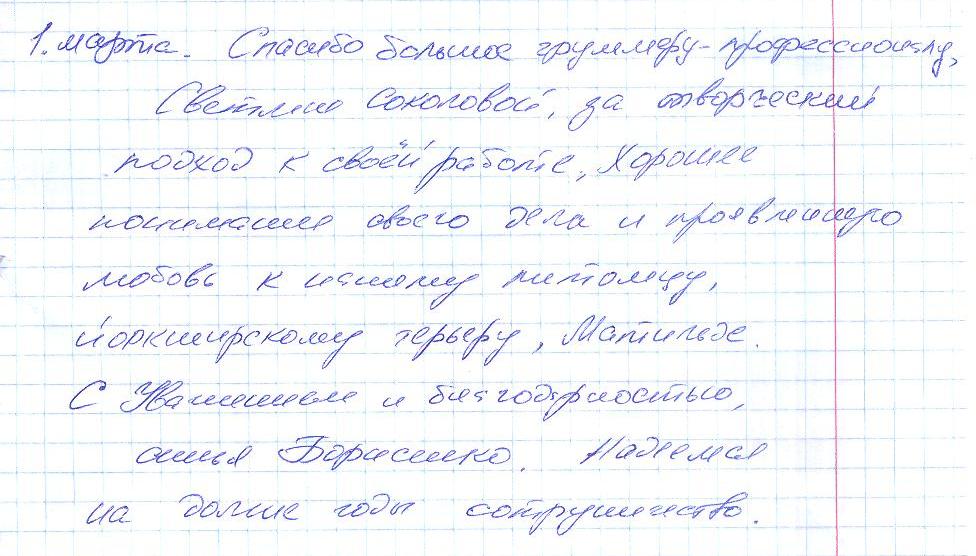 1. марта. Спасибо большое груммеру-профессионалу,
Светлане Соколовой, за творческий
подход к своей работе, Хорошее
понимание своего дела и проявленную
любовь к нашему питомцу,
йоркширскому терьеру, Матильде.
С Уважением и благодарностью,
семья Борисенко. Надеемся
на долгие годы сотрудничества.